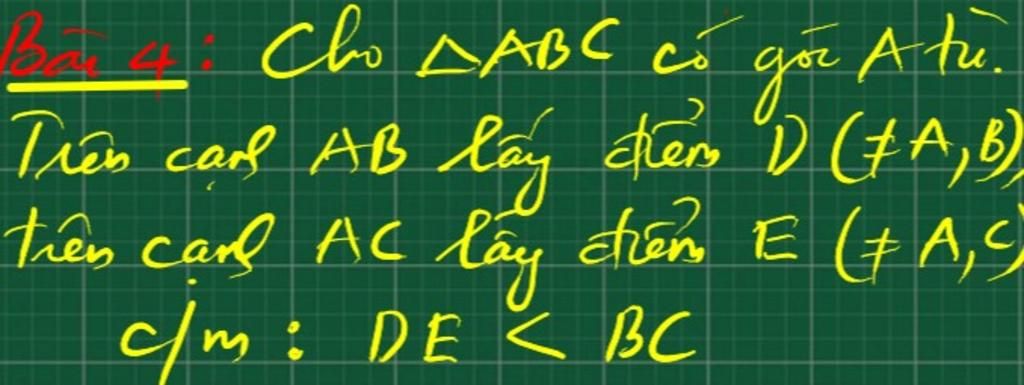 Bài 4: Cho △ABC có góc A tù.
Trên cạnh AB lấy điểm D (≠A,B)
trên cạnh AC lấy điểm E (≠A,C)
c/m: DE < BC